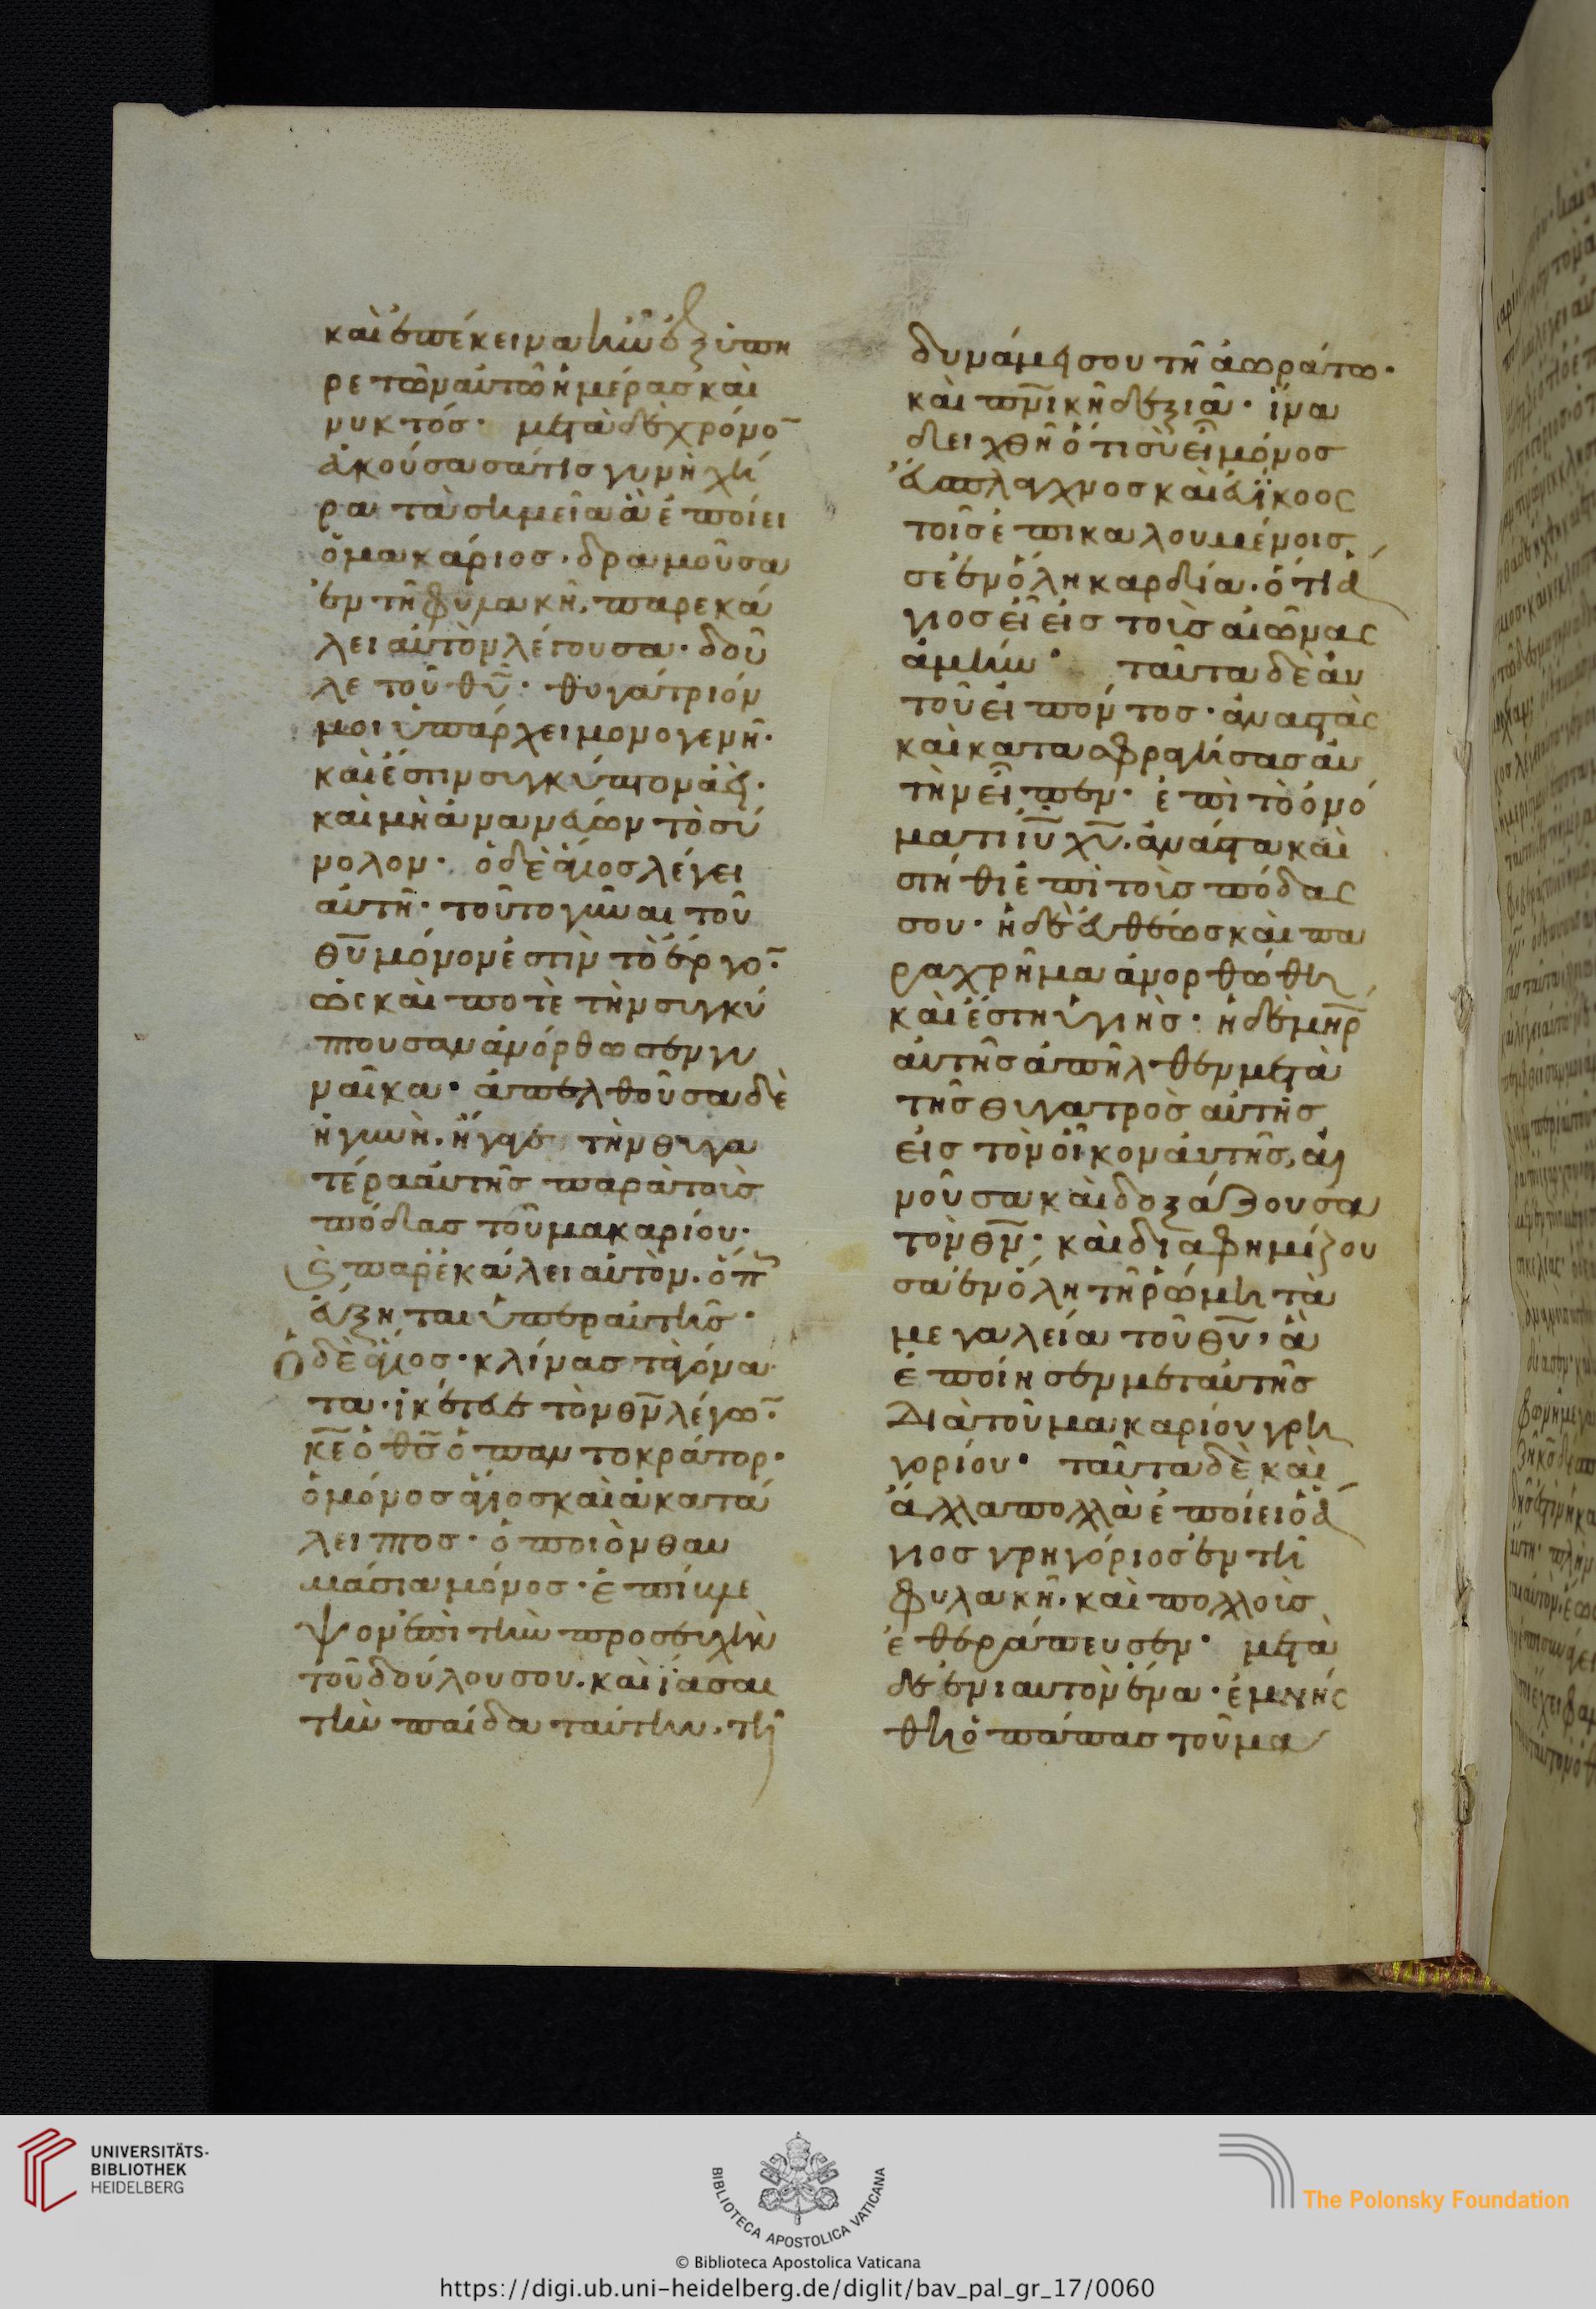 καὶ ἐπέκεινα ἦν ὁ ἐξυπη
ρετῶν αὐτῶ ἡμέρας καὶ
νυκτός· μετὰ δὲ χρόνο̅
ἀκούσασά τις γυνὴ χή
ρα τὰ σημεῖα ἃ ἐποίει
ὁ μακάριος· δραμοῦσα
ἐν τῆ φυλακῆ, παρεκά
λει αὐτὸν λέγουσα· δοῦ
λε τοῦ θυ̅· θυγάτριόν
μοι ὑπάρχει μονογενῆ·
καὶ ἔστιν συγκύπτον ἀεὶ·
καὶ μὴ ἀνανεύων τὸ σύ
νολον· ὁ δὲ ἅγιος λέγει
αὐτῆ· τοῦτο γύναι τοῦ
θυ̅ μόνον ἐστὶν τὸ ἔργο̅·
ὡς καὶ ποτὲ τὴν συγκύ
πτουσαν ἀνόρθωσεν γυ
ναῖκα· ἀπελθοῦσα δὲ
ἡ γυνὴ, ἤγαγε τὴν θυγα
τέρα αὐτῆς παρὰ τοὺς
πόδας τοῦ μακαρίου·
καὶ παρεκάλει αὐτὸν, ὅπως
εὔξηται ὑπὲρ αὐτῆς·
Ὁ δὲ ἅγιος· κλίνας τὰ γόνα
τα· ἱκέτευε τὸν θν̅ λέγω̅·
κε̅ ὁ θς̅ ὁ παντοκράτορ·
ὁ μόνος ἅγιος καὶ ἀκατά
λειπτος· ὁ ποιὸν θαυ
μάσια μόνος· ἐπίκαμ
ψον ἐπὶ τὴν προσευχὴν
τοῦ δούλου σου, καὶ ἴασαι
τὴν παίδα ταύτην, τῆ
δυνάμει σου τῆ ἀωράτω·
καὶ πνικῆ δεξιᾶ· ἵνα
δειχθῆ ὅτι σὺ εἶ μόνος
εὔσπλαχνος καὶ εὐήκοος
τοῖς ἐπικαλουμένοις
σε ἐν ὅλη καρδία· ὅτι ἅ
γιος εἶ εἰς τοὺς αἰῶνας
ἀμήν· ταῦτα δὲ αὐ
τοῦ εἰπόντος· ἀναστὰς
καὶ κατασφραγήσας αὐ
τὴν εἶπεν· ἐπὶ τὸ ὀνό
ματι ἰυ̅ χυ̅, ἀνάστα καὶ
στήθι ἐπὶ τοὺς πόδας
σου· ἡ δὲ εὐθέως καὶ πα
ραχρῆμα ἀνορθώθη
καὶ ἔστη ὑγιὴς· ἡ δὲ μηρ̅
αὐτῆς ἀπῆλθεν μετὰ
τῆς θυγατρὸς αὐτῆς
εἰς τὸν οἶκον αὐτῆς, αἰ
νοῦσα καὶ δοξάζουσα
τὸν θν̅· καὶ διαφημίζου
σα ἐν ὅλη τῆ ῥώμη τὰ
μεγαλεία τοῦ θυ̅, ἃ
ἐποίησεν μετ' αὐτῆς
Διὰ τοῦ μακαρίου γρη
γορίου· ταῦτα δὲ καὶ
ἄλλα πολλὰ ἐποίει ὁ ἅ
γιος γρηγόριος ἐν τῆ
φυλακῆ, καὶ πολλοὺς
ἐθεράπευσεν· μετὰ
δὲ ἐνιαυτὸν ἕνα· ἐμνής
θη ὁ πάπας τοῦ μα
UNIVERSITÄTS-
BIBLIOTHEK
HEIDELBERG
BIBLIOTECA APOSTOLICA VATICANA
The Polonsky Foundation
© Biblioteca Apostolica Vaticana
https://digi.ub.uni-heidelberg.de/diglit/bav_pal_gr_17/0060